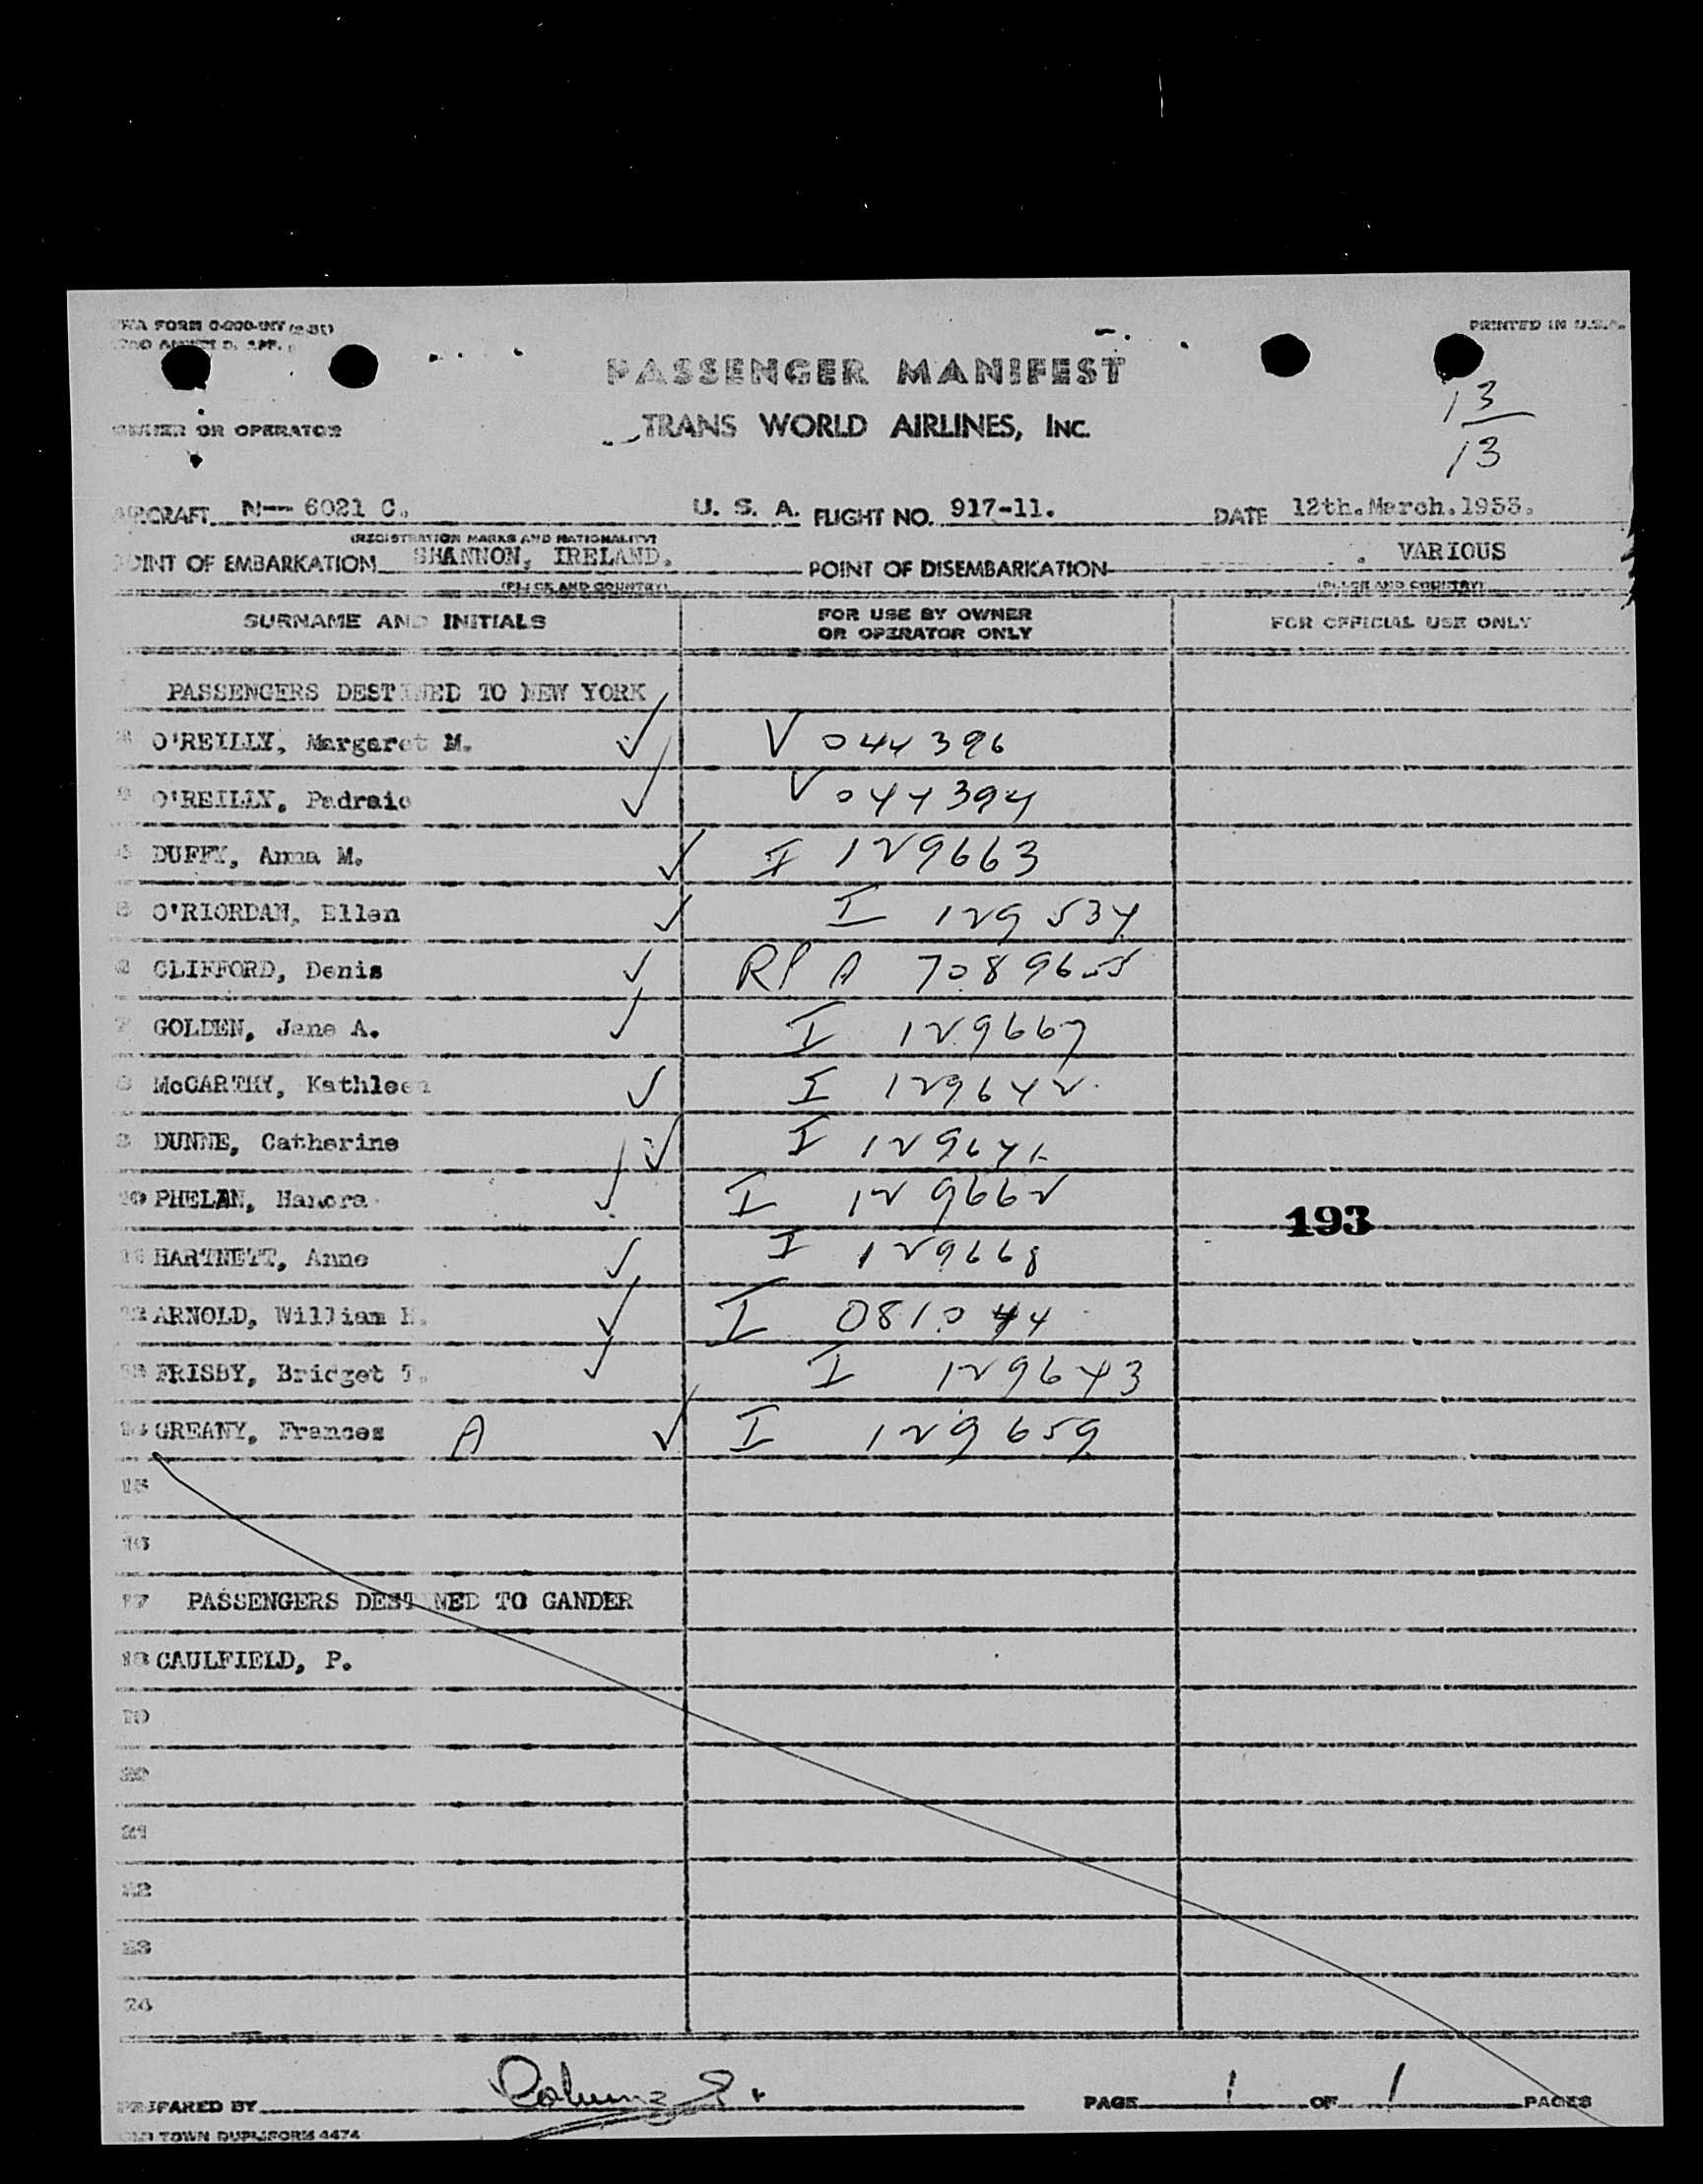 TWA FORM
PRINTED IN U.S.A.
PASSENGER MANIFEST
13
OWNER OR OPERATOR
TRANS WORLD AIRLINES, INC.
13
AIRCRAFT N-- 6021 C. U. S. A. FLIGHT NO. 917-11. DATE 12th.March.1953.
(REGISTRATION MARKS AND NATIONALITY)
POINT OF EMBARKATION SHANNON, IRELAND. POINT OF DISEMBARKATION VARIOUS
(PLACE AND COUNTRY) (PLACE AND COUNTRY)
SURNAME AND INITIALS FOR USE BY OWNER OR OPERATOR ONLY FOR OFFICIAL USE ONLY
PASSENGERS DESTINED TO NEW YORK
O'REILLY, Margaret M. ✓ V 044396
O'REILLY, Padraic ✓ V 044394
DUFFY, Anna M. ✓ I 129663
O'RIORDAN, Ellen ✓ I 129534
CLIFFORD, Denis ✓ RP A 7089655
7 GOLDEN, Jane A. ✓ I 129667
8 McCARTHY, Kathleen ✓ I 129642
DUNNE, Catherine ✓ I
10 PHELAN, Hanora ✓ I 129662
193
HARTNETT, Anne ✓ I 129668
12 ARNOLD, William H. ✓ I 081044
13 FRISBY, Bridget T. ✓ I 129643
14 GREANY, Frances A ✓ I 129659
15
16
17 PASSENGERS DESTINED TO GANDER
18 CAULFIELD, P.
19
20
21
22
23
24
PREPARED BY PAGE 1 OF 1 PAGES
TOWN DUPLIFORM 4474